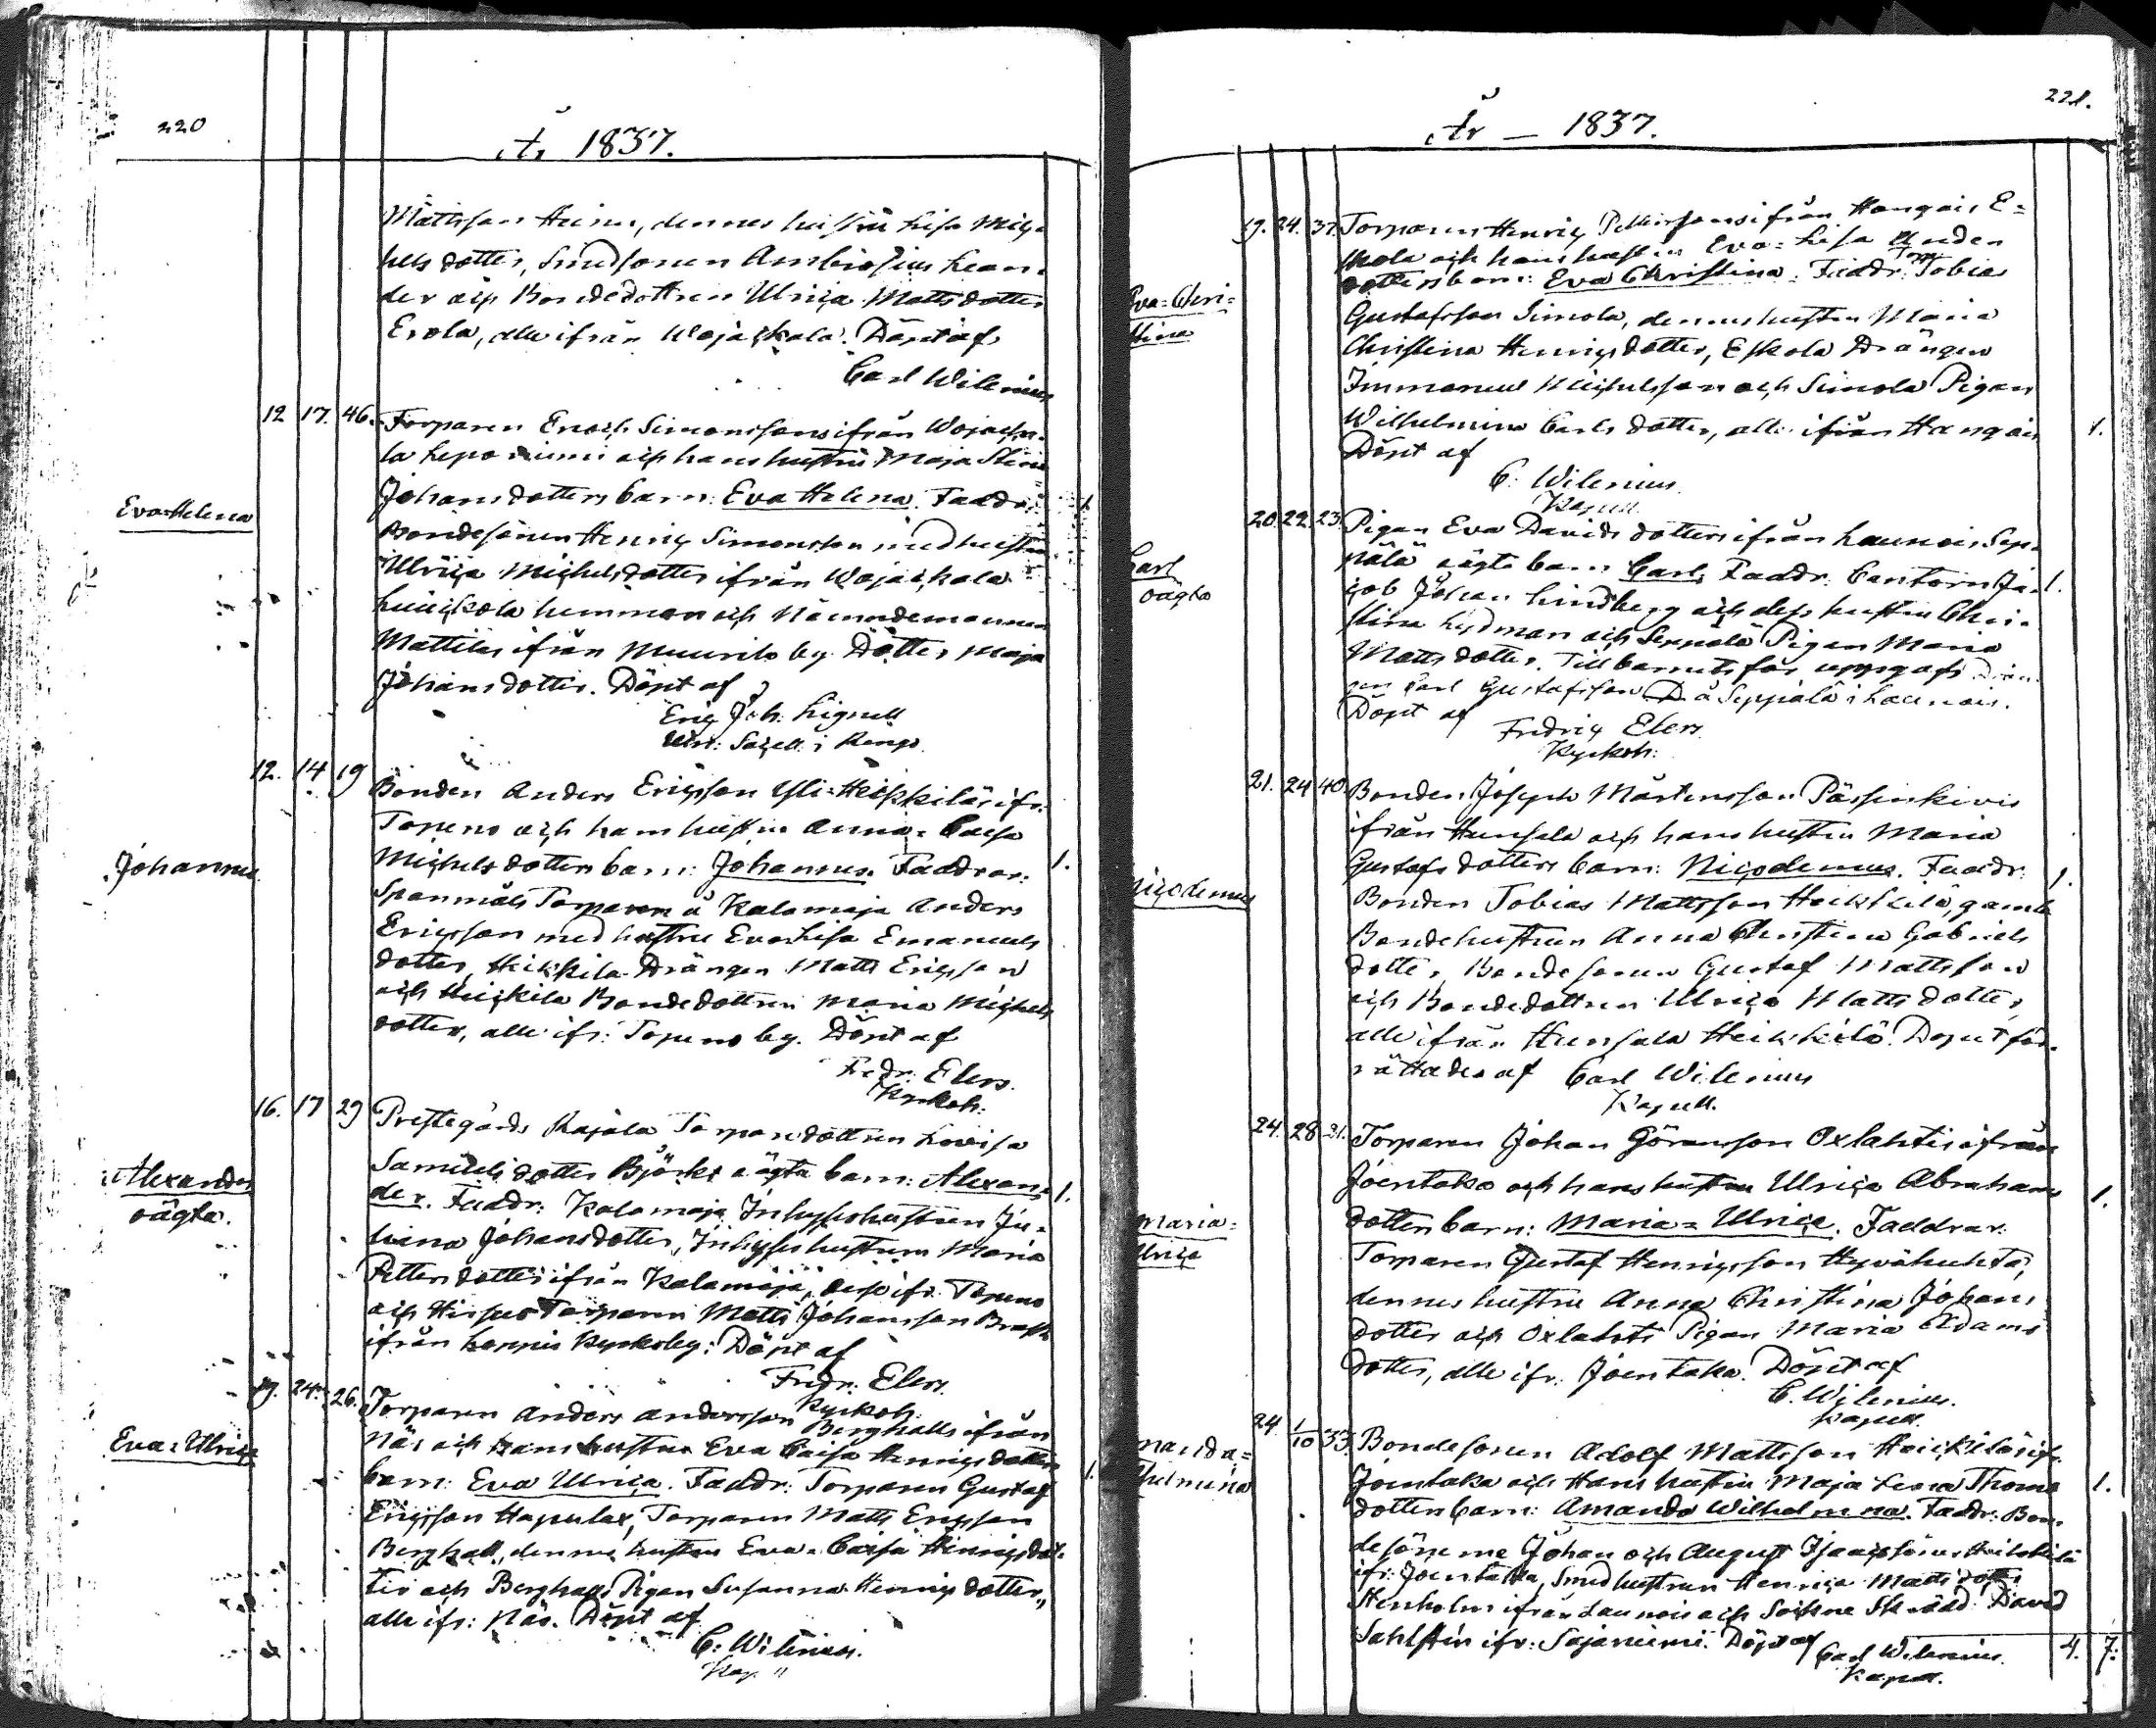 220
År 1837.
Mattsson Heinu, dennes hustru Lisa Mich-
hels dotter, Smedsonen Ambrosius Lean-
der och Bondedottren Ulrica Matts dotter
Erola, alle ifrån Wojaskala. Döpt af
Carl Wilenius
12 17. 46. Torparen Enoch Simonssons ifrån Wojaska-
la Leponiemi och hans hustru Maja Stina
Johans dotters barn: Eva Helena. Faddr:
Eva Helena
1.
Bondesonen Henric Simonsson med hustru
Ulrica Michelsdotter ifrån Wojaskala
hemman och Nämndemannen
Mattilas ifrån Muurila by Dotter Maja
Johansdotter. Döpt af
Eric Joh: Lignell
12. 14 19 Bonden Anders Ericsson Yli-Heikkiläs ifr:
Topeno och hans hustru Anna-Caisa
Michels dotters barn: Johannes. Faddrar:
Johannes
1.
Spanmåls Torparen å Kalamaja Anders
Ericsson med hustru Eva Lisa Emanuels
dotter, Heikkila Drängen Matts Ericsson
och Heickila Bondedottren Maria Michels
dotter, alle ifr: Topeno by. Döpt af
Fredr: Elers.
Kyrkoh:
16. 17 29 Prestegårds Kajala Torparedottren Lovisa
Samuels dotter Björks oägta barn: Alexan-
Alexander
oägta.
1.
der. Faddr: Kalamaja Inhyseshustrun Ju-
liana Johansdotter, Inhyses hustrun Maria
Petters dotter ifrån Kalamaja, ifr: Topeno
och Torparen Matts Johansson
ifrån Loppis Kyrkoby: Döpt af
Fredr: Elers.
Kyrkoh:
19. 24. 26. Torparen Anders Andersson Berghälls ifrån
Näs och hans hustru Eva Caisa Henrics dotters
Eva-Ulrica
barn: Eva Ulrica. Faddr: Torparen Gustaf
1.
Ericsson Hapulax, Torparen Matts Ericsson
Berghäll, dennes hustru Eva-Caisa Henrics dot-
ter och Berghälls Pigan Susanna Henrics dotter,
alle ifr: Näs. Döpt af
C: Wilenius.
Kap:
221.
År — 1837.
19. 24. 37. Torparen Henric Petterssons ifrån Hangois E-
skola och hans hustru Eva-Lisa Anders
dotters barn: Eva Christina. Faddr: Torp Tobias
Eva-Chri-
stina
Gustafsson Simola, dennes hustru Maria
Christina Henrics dotter, Eskola Drängen
Immanuel Michelsson och Simola Pigan
Wilhelmina Carls dotter, alle ifrån Hangois
1.
Döpt af
C: Wilenius
Kapell.
20. 22. 23. Pigan Eva Davids dotters ifrån Launois Sep-
pälä oägta barn Carl, Faddr: Cantorn Ja-
1.
Carl
oägta
cob Johan Lindberg och dess hustru Chri-
stina Lydman och Seppälä Pigan Maria
Matts dotter. Till barnets far uppgafs Drän-
gen Carl Gustafsson Då Seppälä i Launois.
Döpt af
Fredric Elers
Kyrkoh:
21. 24 40. Bonden Joseph Mårtensson Pässinkivis
ifrån Hunsala och hans hustru Maria
Gustafs dotters barn: Nicodemus. Faddr:
1.
Nicodemus
Bonden Tobias Mattsson Heikkilä, gamle
Bondehustrun Anna Christina Gabriels
dotter, Bondesonen Gustaf Mattsson
och Bondedottren Ulrica Matts dotter,
alle ifrån Hunsala Heikkilä. Döpt för-
rättades af Carl Wilenius
Kapell.
24. 28 31. Torparen Johan Göransson Oxlahtis ifrån
Joentaka och hans hustru Ulrica Abrahams
1.
dotters barn: Maria-Ulrica. Faddrar:
Maria-
Ulrica
Torparen Gustaf Henricsson Hyvähuhta,
dennes hustru Anna Christina Johans
dotter och Oxlahti Pigan Maria Adams
dotter, alle ifr: Joentaka. Döpt af
C. Wilenius.
Kapell.
24 1/10 33. Bondesonen Adolf Mattsson Heickiläs ifr:
Joentaka och Hans hustru Maja Lena Thoms
1.
manda-
lhelmina
dotters barn: Amanda Wilhelmina. Faddr: Bon-
desönerne Johan och August Isacssöner Heikkilä
ifr: Joentaka, Smedhustrun Henrica Matts dotter
Stenholm ifrån Launois och Sockne Skrädd: David
Sahlstén ifr: Sajaniemi. Döpt af Carl Wilenius
Kapell.
4. 7.